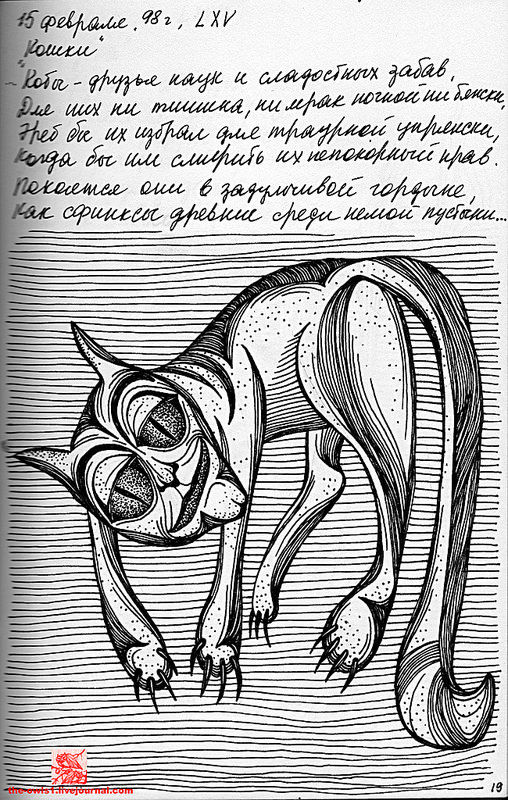 15 февраля, 98 г, LXV
"Кошки"
Коты – друзья наук и сладостных забав,
Для них ни тишина, ни мрак ночной ни тяжки,
Эреб бы их избрал для траурной упряжки,
Когда бы им смирить их непокорный нрав.
Покоятся они в задумчивой гордыне,
Как сфинксы древние среди немой пустыни...
19
the-owls1.livejournal.com